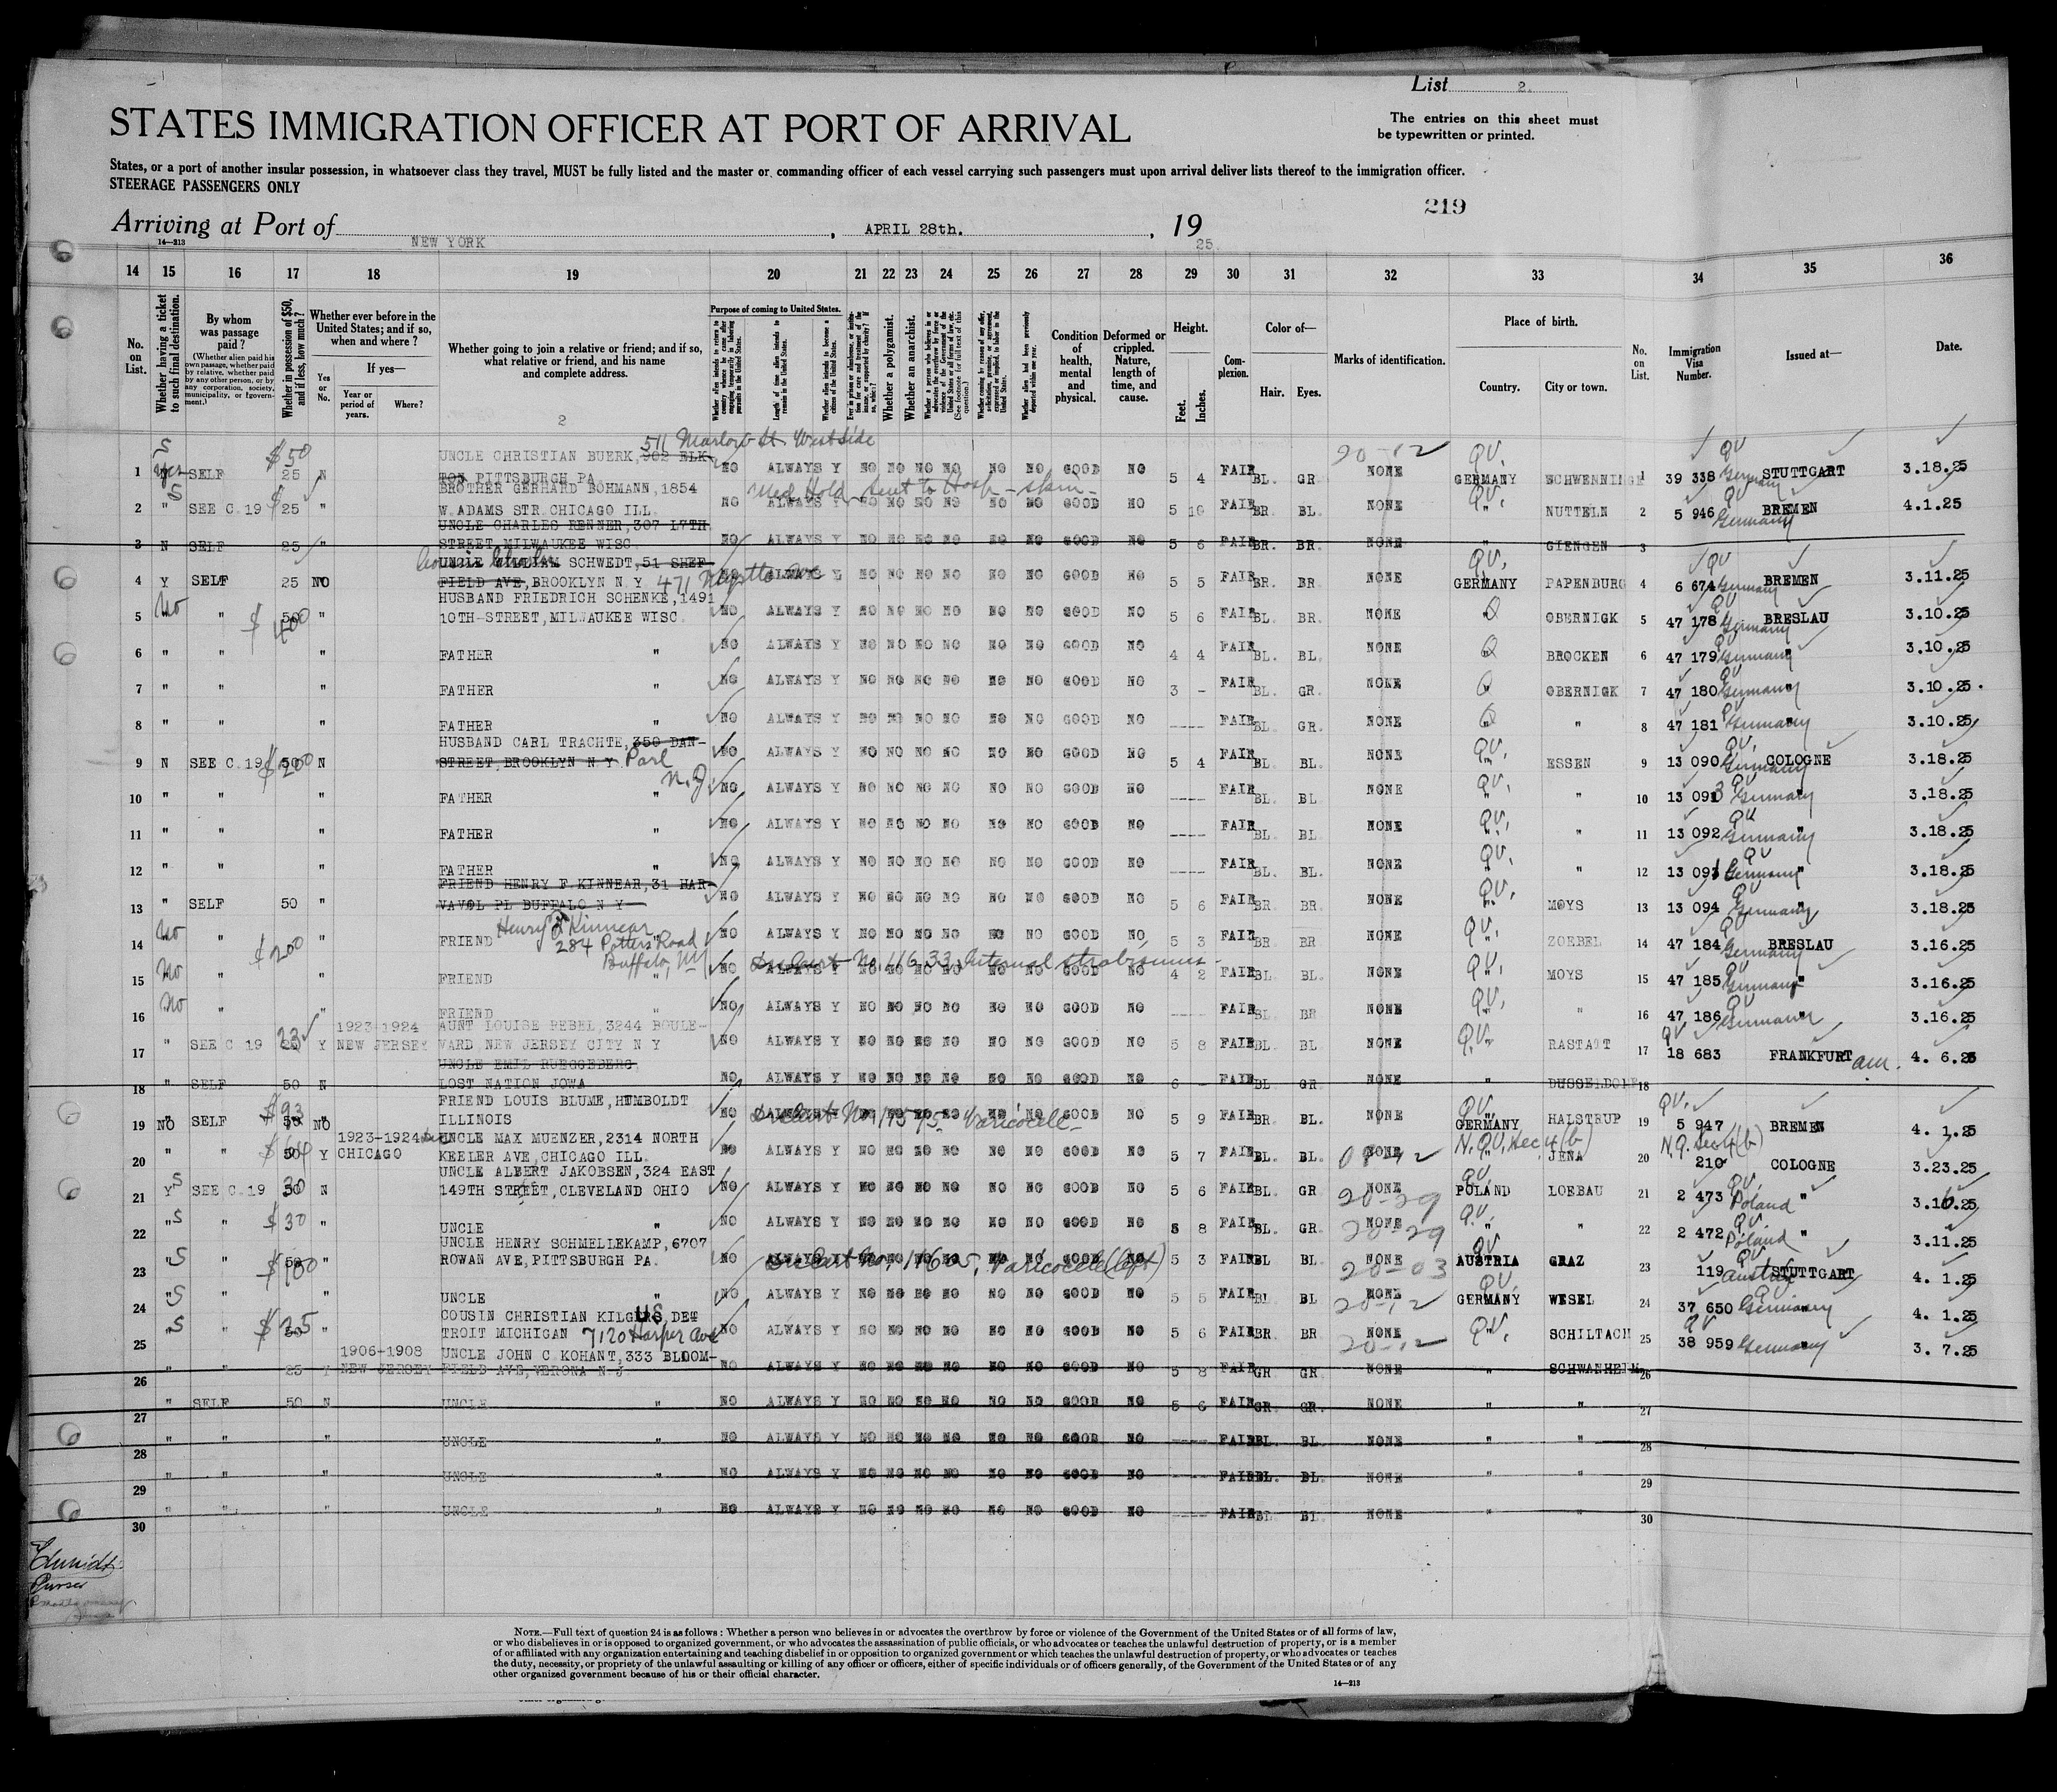 List 2.
STATES IMMIGRATION OFFICER AT PORT OF ARRIVAL
The entries on this sheet must
be typewritten or printed.
States, or a port of another insular possession, in whatsoever class they travel, MUST be fully listed and the master or commanding officer of each vessel carrying such passengers must upon arrival deliver lists thereof to the immigration officer.
STEERAGE PASSENGERS ONLY
219
Arriving at Port of NEW YORK, APRIL 28th., 1925
14—213
14 15 16 17 18 19 20 21 22 23 24 25 26 27 28 29 30 31 32 33 34 35 36
No. on List.
Whether having a ticket to such final destination.
By whom was passage paid?
(Whether alien paid his own passage, whether paid by relative, whether paid by any other person, or by any corporation, society, municipality, or government.)
Whether in possession of $50, and if less, how much?
Whether ever before in the United States; and if so, when and where?
Yes or No.
If yes—
Year or period of years.
Where?
Whether going to join a relative or friend; and if so, what relative or friend, and his name and complete address.
2
Purpose of coming to United States.
Length of time alien intends to remain in the United States.
Whether alien intends to become a citizen of the United States.
Whether a polygamist.
Whether an anarchist.
Condition of health, mental and physical.
Deformed or crippled. Nature, length of time, and cause.
Height.
Feet. Inches.
Complexion.
Color of—
Hair. Eyes.
Marks of identification.
Place of birth.
Country. City or town.
No. on List.
Immigration Visa Number.
Issued at—
Date.
511 Marlow St. Westside
UNCLE CHRISTIAN BUERK, 902 ELK-
1 yes SELF $50 25 N TON PITTSBURGH PA NO ALWAYS Y NO NO NO NO NO NO GOOD NO 5 4 FAIR BL. GR. NONE QV. GERMANY SCHWENNINGE 1 39 338 QV Germany STUTTGART 3.18.25
BROTHER GERHARD BOHMANN, 1854 Med Hold Sent to Hosp - skin -
2 " SEE C.19 25 " W. ADAMS STR. CHICAGO ILL. NO ALWAYS Y NO NO NO NO NO NO GOOD NO 5 10 FAIR BR. BL. NONE QV. " NUTTELN 2 5 946 QV Germany BREMEN 4.1.25
UNCLE CHARLES RENNER, 307 17TH
3 N SELF 25 " STREET, MILWAUKEE WISC. NO ALWAYS Y NO NO NO NO NO NO GOOD NO 5 6 FAIR BR. BR. NONE " GIENGEN 3
UNCLE WILLIAM SCHWEDT, 51 SHEF-
4 Y SELF 25 NO FIELD AVE, BROOKLYN N.Y. 471 Myrtle Ave NO ALWAYS Y NO NO NO NO NO NO GOOD NO 5 5 FAIR BR. BR. NONE QV. GERMANY PAPENBURG 4 6 674 QV Germany BREMEN 3.11.25
HUSBAND FRIEDRICH SCHENKE, 1491
5 No " $400 50 " 10TH-STREET, MILWAUKEE WISC. NO ALWAYS Y NO NO NO NO NO NO GOOD NO 5 6 FAIR BL. BR. NONE Q OBERNIGK 5 47 178 QV Germany BRESLAU 3.10.25
6 " " " FATHER " NO ALWAYS Y NO NO NO NO NO NO GOOD NO 4 4 FAIR BL. BL. NONE Q BROCKEN 6 47 179 Germany " 3.10.25
7 " " " FATHER " NO ALWAYS Y NO NO NO NO NO NO GOOD NO 3 - FAIR BL. GR. NONE Q OBERNIGK 7 47 180 QV Germany " 3.10.25.
8 " " " FATHER " NO ALWAYS Y NO NO NO NO NO NO GOOD NO ---- FAIR BL GR. NONE Q " 8 47 181 Germany " 3.10.25
HUSBAND CARL TRACHTE, 350 DAN-
9 N SEE C.19 $200 50 N STREET, BROOKLYN N Y NO ALWAYS Y NO NO NO NO NO NO GOOD NO 5 4 FAIR BL BL. NONE QV. " ESSEN 9 13 090 QV. Germany COLOGNE 3.18.25
N.J.
10 " " " FATHER " NO ALWAYS Y NO NO NO NO NO NO GOOD NO ---- FAIR BL. BL NONE QV. " " 10 13 093 Germany 3.18.25
11 " " " FATHER " NO ALWAYS Y NO NO NO NO NO NO GOOD NO ---- FAIR BL. BL NONE QV. " " 11 13 092 QV Germany " 3.18.25
12 " " " FATHER " NO ALWAYS Y NO NO NO NO NO NO GOOD NO ---- FAIR BL. BL. NONE QV. " " 12 13 091 QV Germany " 3.18.25
FRIEND HENRY F KINNEAR, 31 HAR-
13 " SELF 50 " VAVOL PL BUFFALO N Y NO ALWAYS Y NO NO NO NO NO NO GOOD NO 5 6 FAIR BR. BR. NONE QV. " MOYS 13 13 094 QV Germany 3.18.25
Henry F Kinnear
14 No " $200 " FRIEND 284 Potters Road " NO ALWAYS Y NO NO NO NO NO NO GOOD NO 5 3 FAIR BR BR NONE QV. " ZOEBEL 14 47 184 QV Germany BRESLAU 3.16.25
Buffalo, NY No. 11633, Internal strabismus -
15 No " " FRIEND " NO ALWAYS Y NO NO NO NO NO NO GOOD NO 4 2 FAIR BL BL. NONE QV. " MOYS 15 47 185 QV Germany " 3.16.25
16 No " " FRIEND " NO ALWAYS Y NO NO NO NO NO NO GOOD NO ---- FAIR BL BR NONE QV. " " 16 47 186 QV Germany " 3.16.25
1923-1924 AUNT LOUISE BEBEL, 3244 BOULE-
17 " SEE C 19 23 Y NEW JERSEY VARD, NEW JERSEY CITY N Y NO ALWAYS Y NO NO NO NO NO NO GOOD NO 5 8 FAIR BL. BL NONE QV. " RASTATT 17 QV 18 683 FRANKFURT a.M. 4. 6.25
UNCLE EMIL RUEGGEBERG
18 " SELF 50 N LOST NATION JOWA NO ALWAYS Y NO NO NO NO NO NO GOOD NO 6 - FAIR BL GR. NONE " DUSSELDORF 18
FRIEND LOUIS BLUME, HUMBOLDT
19 NO SELF $93 50 NO ILLINOIS NO ALWAYS Y NO NO NO NO NO NO GOOD NO 5 9 FAIR BR. BL. NONE QV. GERMANY HALSTRUP 19 QV. 5 947 BREMEN 4. 1.25
Varicocele -
1923-1924 UNCLE MAX MUENZER, 2314 NORTH
20 " " 50 Y CHICAGO KEELER AVE, CHICAGO ILL. NO ALWAYS Y NO NO NO NO NO NO GOOD NO 5 7 FAIR BL. BL. NONE N.QV. Sec 4(b) " JENA 20 N.Q. Sec 4(b) 210 COLOGNE 3.23.25
UNCLE ALBERT JAKOBSEN, 324 EAST
21 Y S SEE C.19 30 N 149TH STREET, CLEVELAND OHIO NO ALWAYS Y NO NO NO NO NO NO GOOD NO 5 6 FAIR BL. GR NONE 20-29 QV. POLAND LOEBAU 21 2 473 QV. Poland " 3.16.25
22 " S " $30 " UNCLE " NO ALWAYS Y NO NO NO NO NO NO GOOD NO 5 8 FAIR BL. GR. NONE 20-29 QV. " " 22 2 472 QV Poland " 3.11.25
UNCLE HENRY SCHMELLEKAMP, 6707
23 " S " $100 50 " ROWAN AVE, PITTSBURGH PA. NO ALWAYS Y NO NO NO NO NO NO GOOD NO 5 3 FAIR BL BL. NONE 20-03 QV AUSTRIA GRAZ 23 119 QV Austria STUTTGART 4. 1.25
Varicocele (left)
24 " S " " UNCLE " NO ALWAYS Y NO NO NO NO NO NO GOOD NO 5 5 FAIR BL. BL NONE 20-12 QV. GERMANY WESEL 24 37 650 Germany " 4. 1.25
COUSIN CHRISTIAN KILGUS, DET
25 " S " $25 " TROIT MICHIGAN 7120 Harper Ave NO ALWAYS Y NO NO NO NO NO NO GOOD NO 5 6 FAIR BR. BR NONE 20-12 QV. " SCHILTACH 25 QV 38 959 Germany 3. 7.25
1906-1908 UNCLE JOHN C KOHANT, 333 BLOOM-
26 " " 25 Y NEW JERSEY FIELD AVE, VERONA N J. NO ALWAYS Y NO NO NO NO NO NO GOOD NO 5 8 FAIR GR GR. NONE " SCHWANHEIM 26
27 " SELF 50 N UNCLE " NO ALWAYS Y NO NO NO NO NO NO GOOD NO 5 6 FAIR GR. GR. NONE " " 27
28 " " " UNCLE " NO ALWAYS Y NO NO NO NO NO NO GOOD NO ---- FAIR BL. BL. NONE " " 28
29 " " " UNCLE " NO ALWAYS Y NO NO NO NO NO NO GOOD NO --- FAIR BL. BL. NONE " " 29
30 " " " UNCLE " NO ALWAYS Y NO NO NO NO NO NO GOOD NO ---- FAIR BL BL. NONE " " 30
Schmidt
Purser
NOTE.—Full text of question 24 is as follows: Whether a person who believes in or advocates the overthrow by force or violence of the Government of the United States or of all forms of law,
or who disbelieves in or is opposed to organized government, or who advocates the assassination of public officials, or who advocates or teaches the unlawful destruction of property, or is a member
of or affiliated with any organization entertaining and teaching disbelief in or opposition to organized government or which teaches the unlawful destruction of property, or who advocates or teaches
the duty, necessity, or propriety of the unlawful assaulting or killing of any officer or officers, either of specific individuals or of officers generally, of the Government of the United States or of any
other organized government because of his or their official character.
14—213